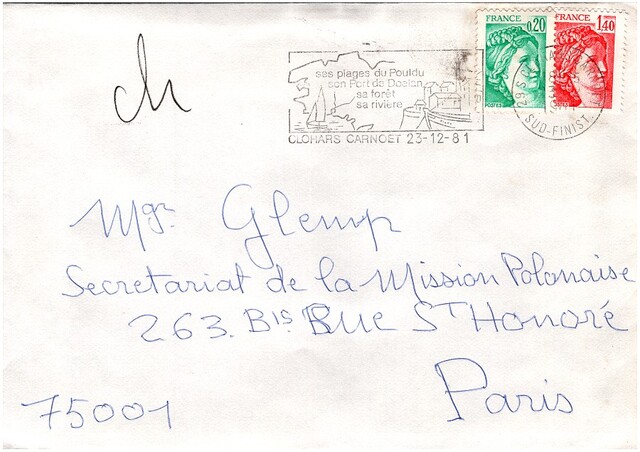 FRANCE 0,20
FRANCE 1,40
POSTES
ses plages du Pouldu
son Port de Doelan
sa forêt
sa rivière
CLOHARS CARNOET 23-12-81
SUD-FINIST.
Mgr Glemp
Secretariat de la Mission Polonaise
263. Bis Rue St Honoré
75001 Paris